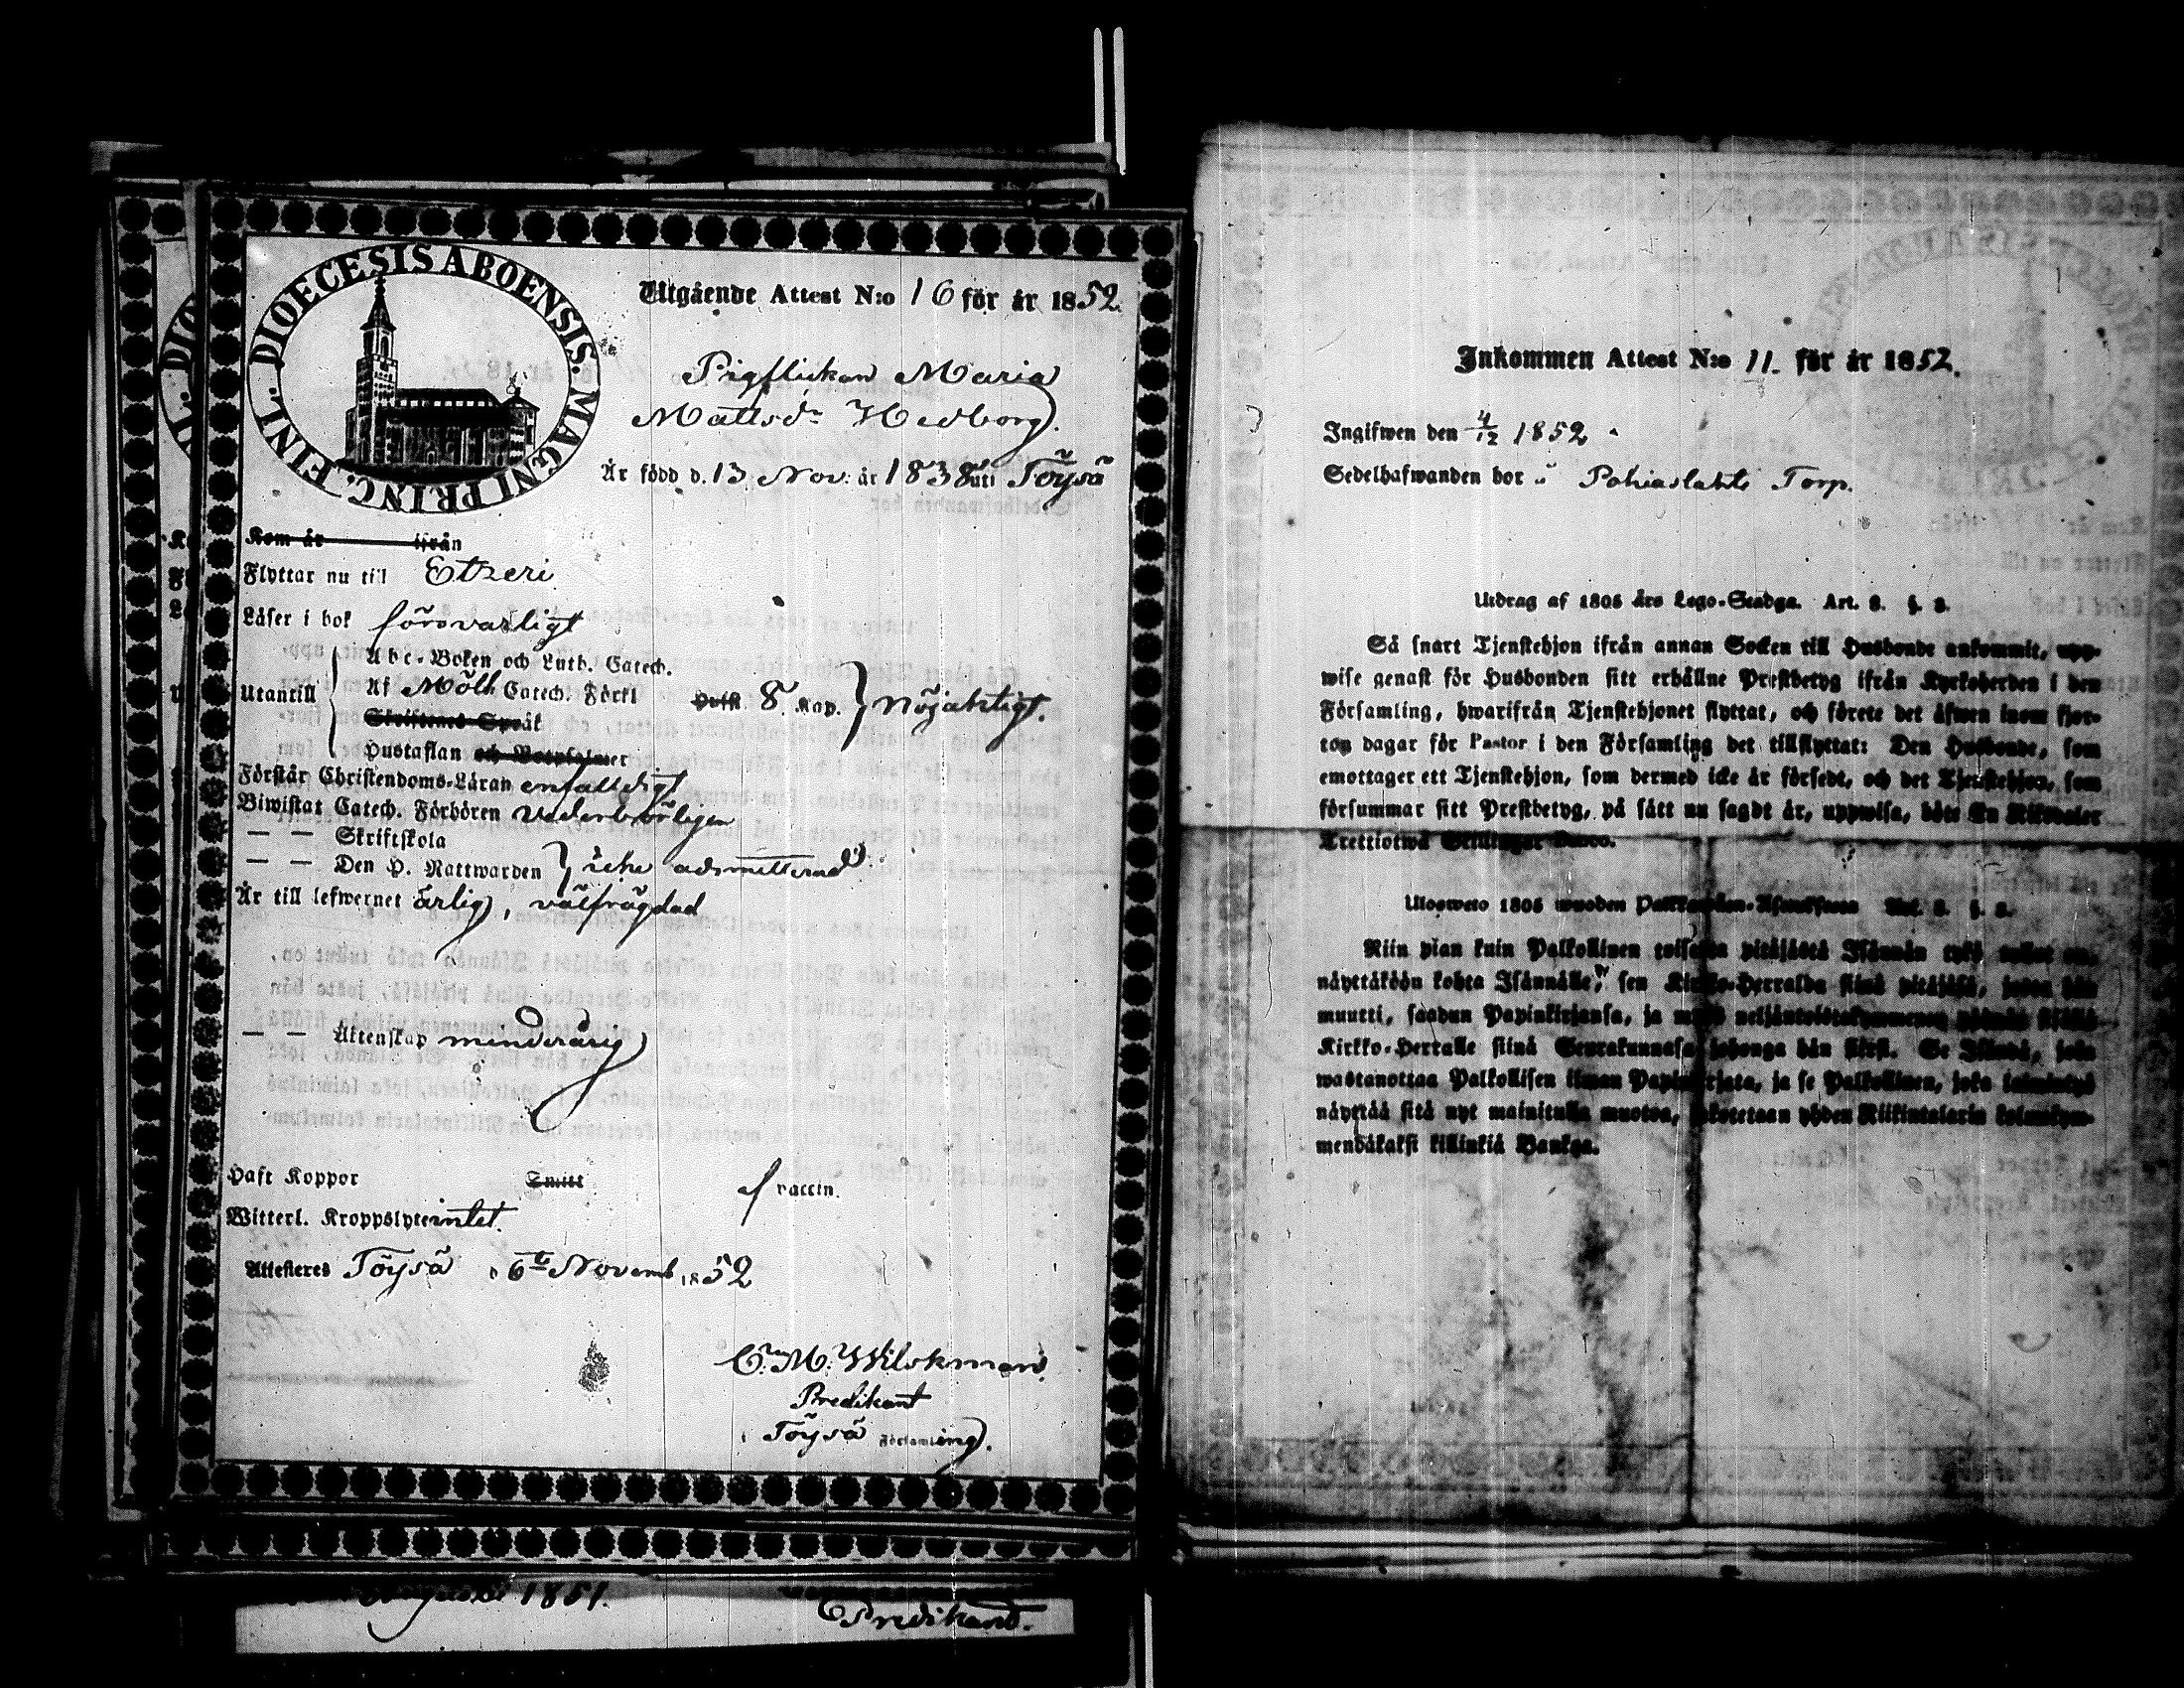 DIOECESIS ABOENSIS. MAGNI PRINC. FINL.
Utgående Attest N:o 16 för år 1852.
Pigflickan Maria
Mattsdr Hedborg.
Är född d. 13 Nov: år 1838 uti Töysä
Kom år ifrån
Flyttar nu till Etzeri
Läser i bok försvarligt
Utantill
Abc-Boken och Luth. Catech.
Af Möllh Catech. Förkl Hufst 8. Kap. nöjaktigt.
Skriftenes Språk
Hustaflan och Botpsalmer
Förstår Christendoms-Läran enfalldigt
Biwistat Catech. Förhören vederbörligen
— — Skriftskola
— — Den H. Nattwarden icke admitterad
Är till lefwernet ärlig, välfrägdad
— — Äktenskap minderårig
Haft Koppor Smitt vaccin.
Witterl. Kroppslyte intet.
Attesteres Töysä d 6te Novemb. 1852
Predikant
i Töysä Församling.
1851.
Predikant.
Inkommen Attest N:o 11. för år 1852.
Ingifwen den 4/12 1852.
Sedelhafwanden bor å Pohiaslahti Torp.
Utdrag af 1805 års Lego-Stadga. Art. 8. §. 8.
Så snart Tjenstehjon ifrån annan Socken till Husbonde ankommit, upp-
wise genast för Husbonden sitt erhållne Prestbetyg ifrån Kyrkoherden i den
Församling, hwarifrån Tjenstehjonet flyttat, och förete det äfwen inom fjor-
ton dagar för Pastor i den Församling det tillflyttat: Den Husbonde, som
emottager ett Tjenstehjon, som dermed icke är försedt, och det Tjenstehjon, som
försummar sitt Prestbetyg, på sätt nu sagdt är, uppwisa, böte En Riksdaler
Trettiotwå Schillingar Banco.
Ulosweto 1805 wuoden Palkollisten-Asetuksesta Art. 8. §. 8.
Niin pian kuin Palkollinen toisesta pitäjästä Isännän tykö tullut on,
näyttäköön kohta Isännälle, sen Kirkko-Herralda siinä pitäjäsä, josta hän
muutti, saadun Papinkirjansa, ja
Kirkko-Herralle siinä Seurakunnasa johonga hän siirsi. Se Isändä, joka
wastanottaa Palkollisen ilman Papinkirjata, ja se Palkollinen, joka laiminlyö
näyttää sitä nyt mainitulla muotoa, sakotetaan yhden Riikintalarin kolmekym-
mendäkaksi killinkiä Bankga.